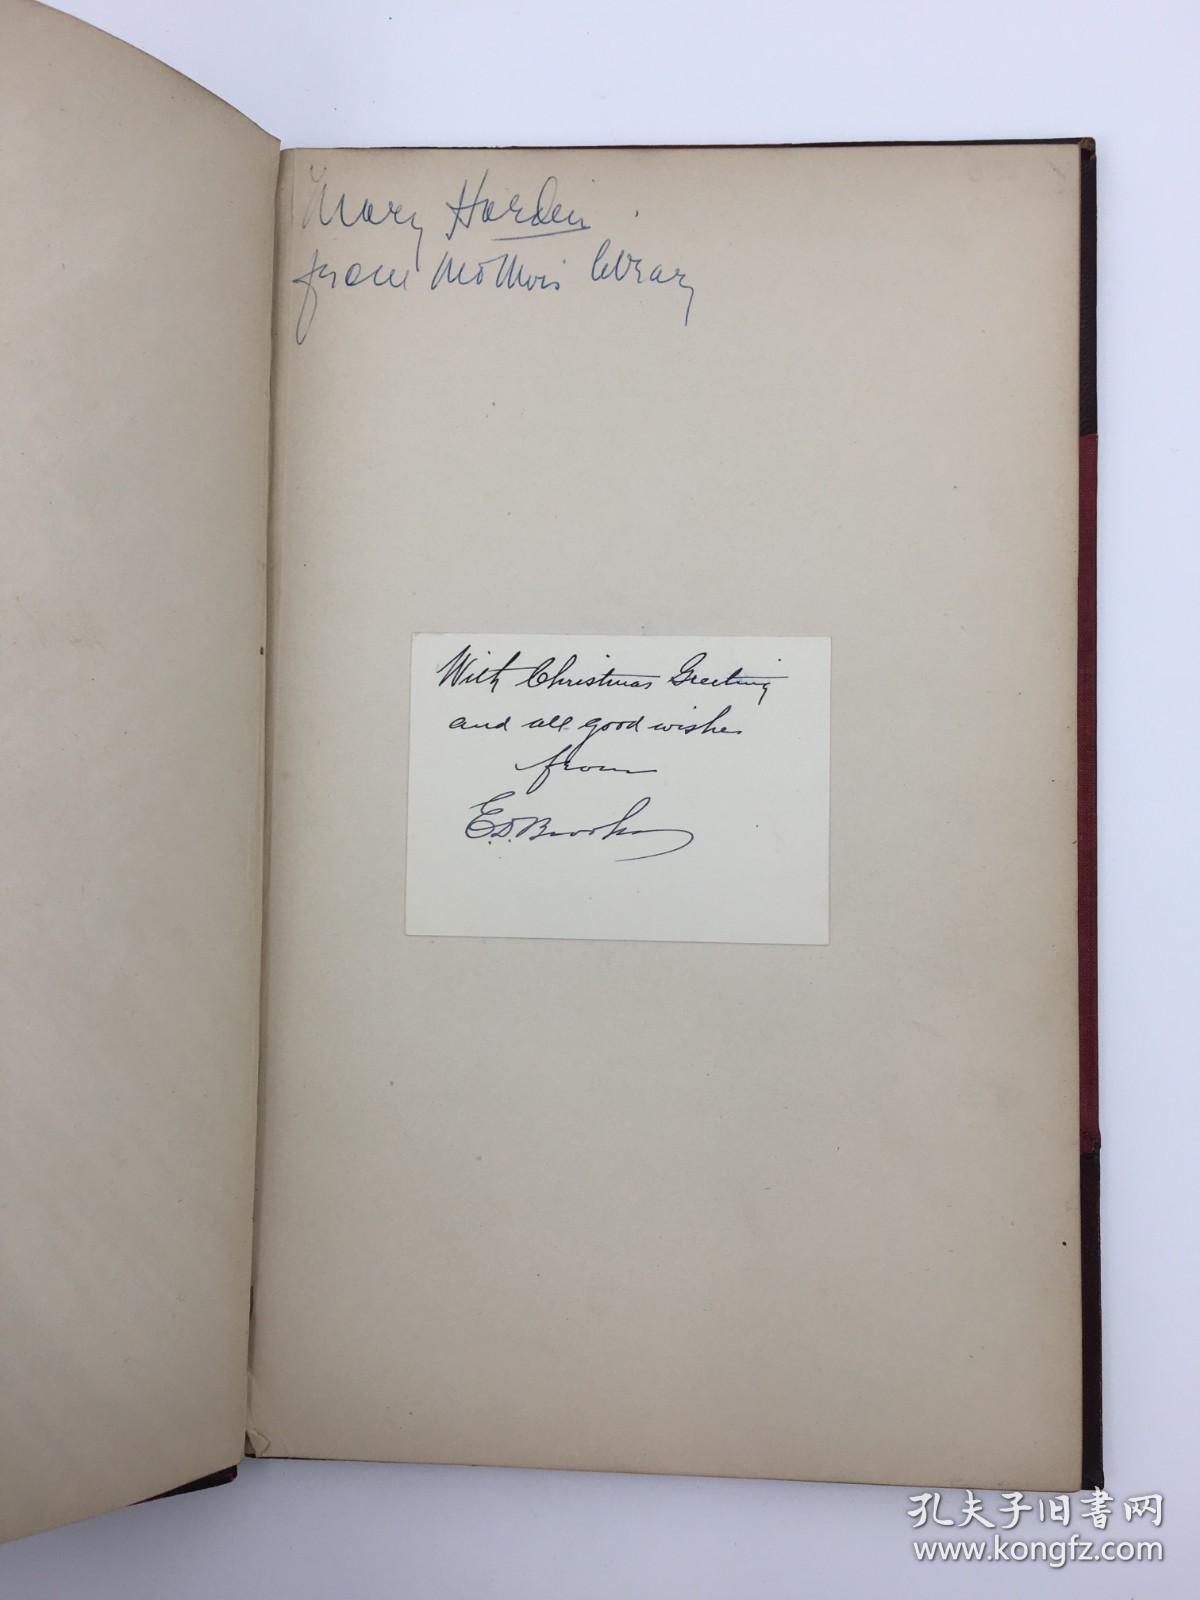 Mary Harden
from Mothers library
With Christmas Greeting
and all good wishes
from
E.D. Brooks
孔夫子旧书网
www.kongfz.com